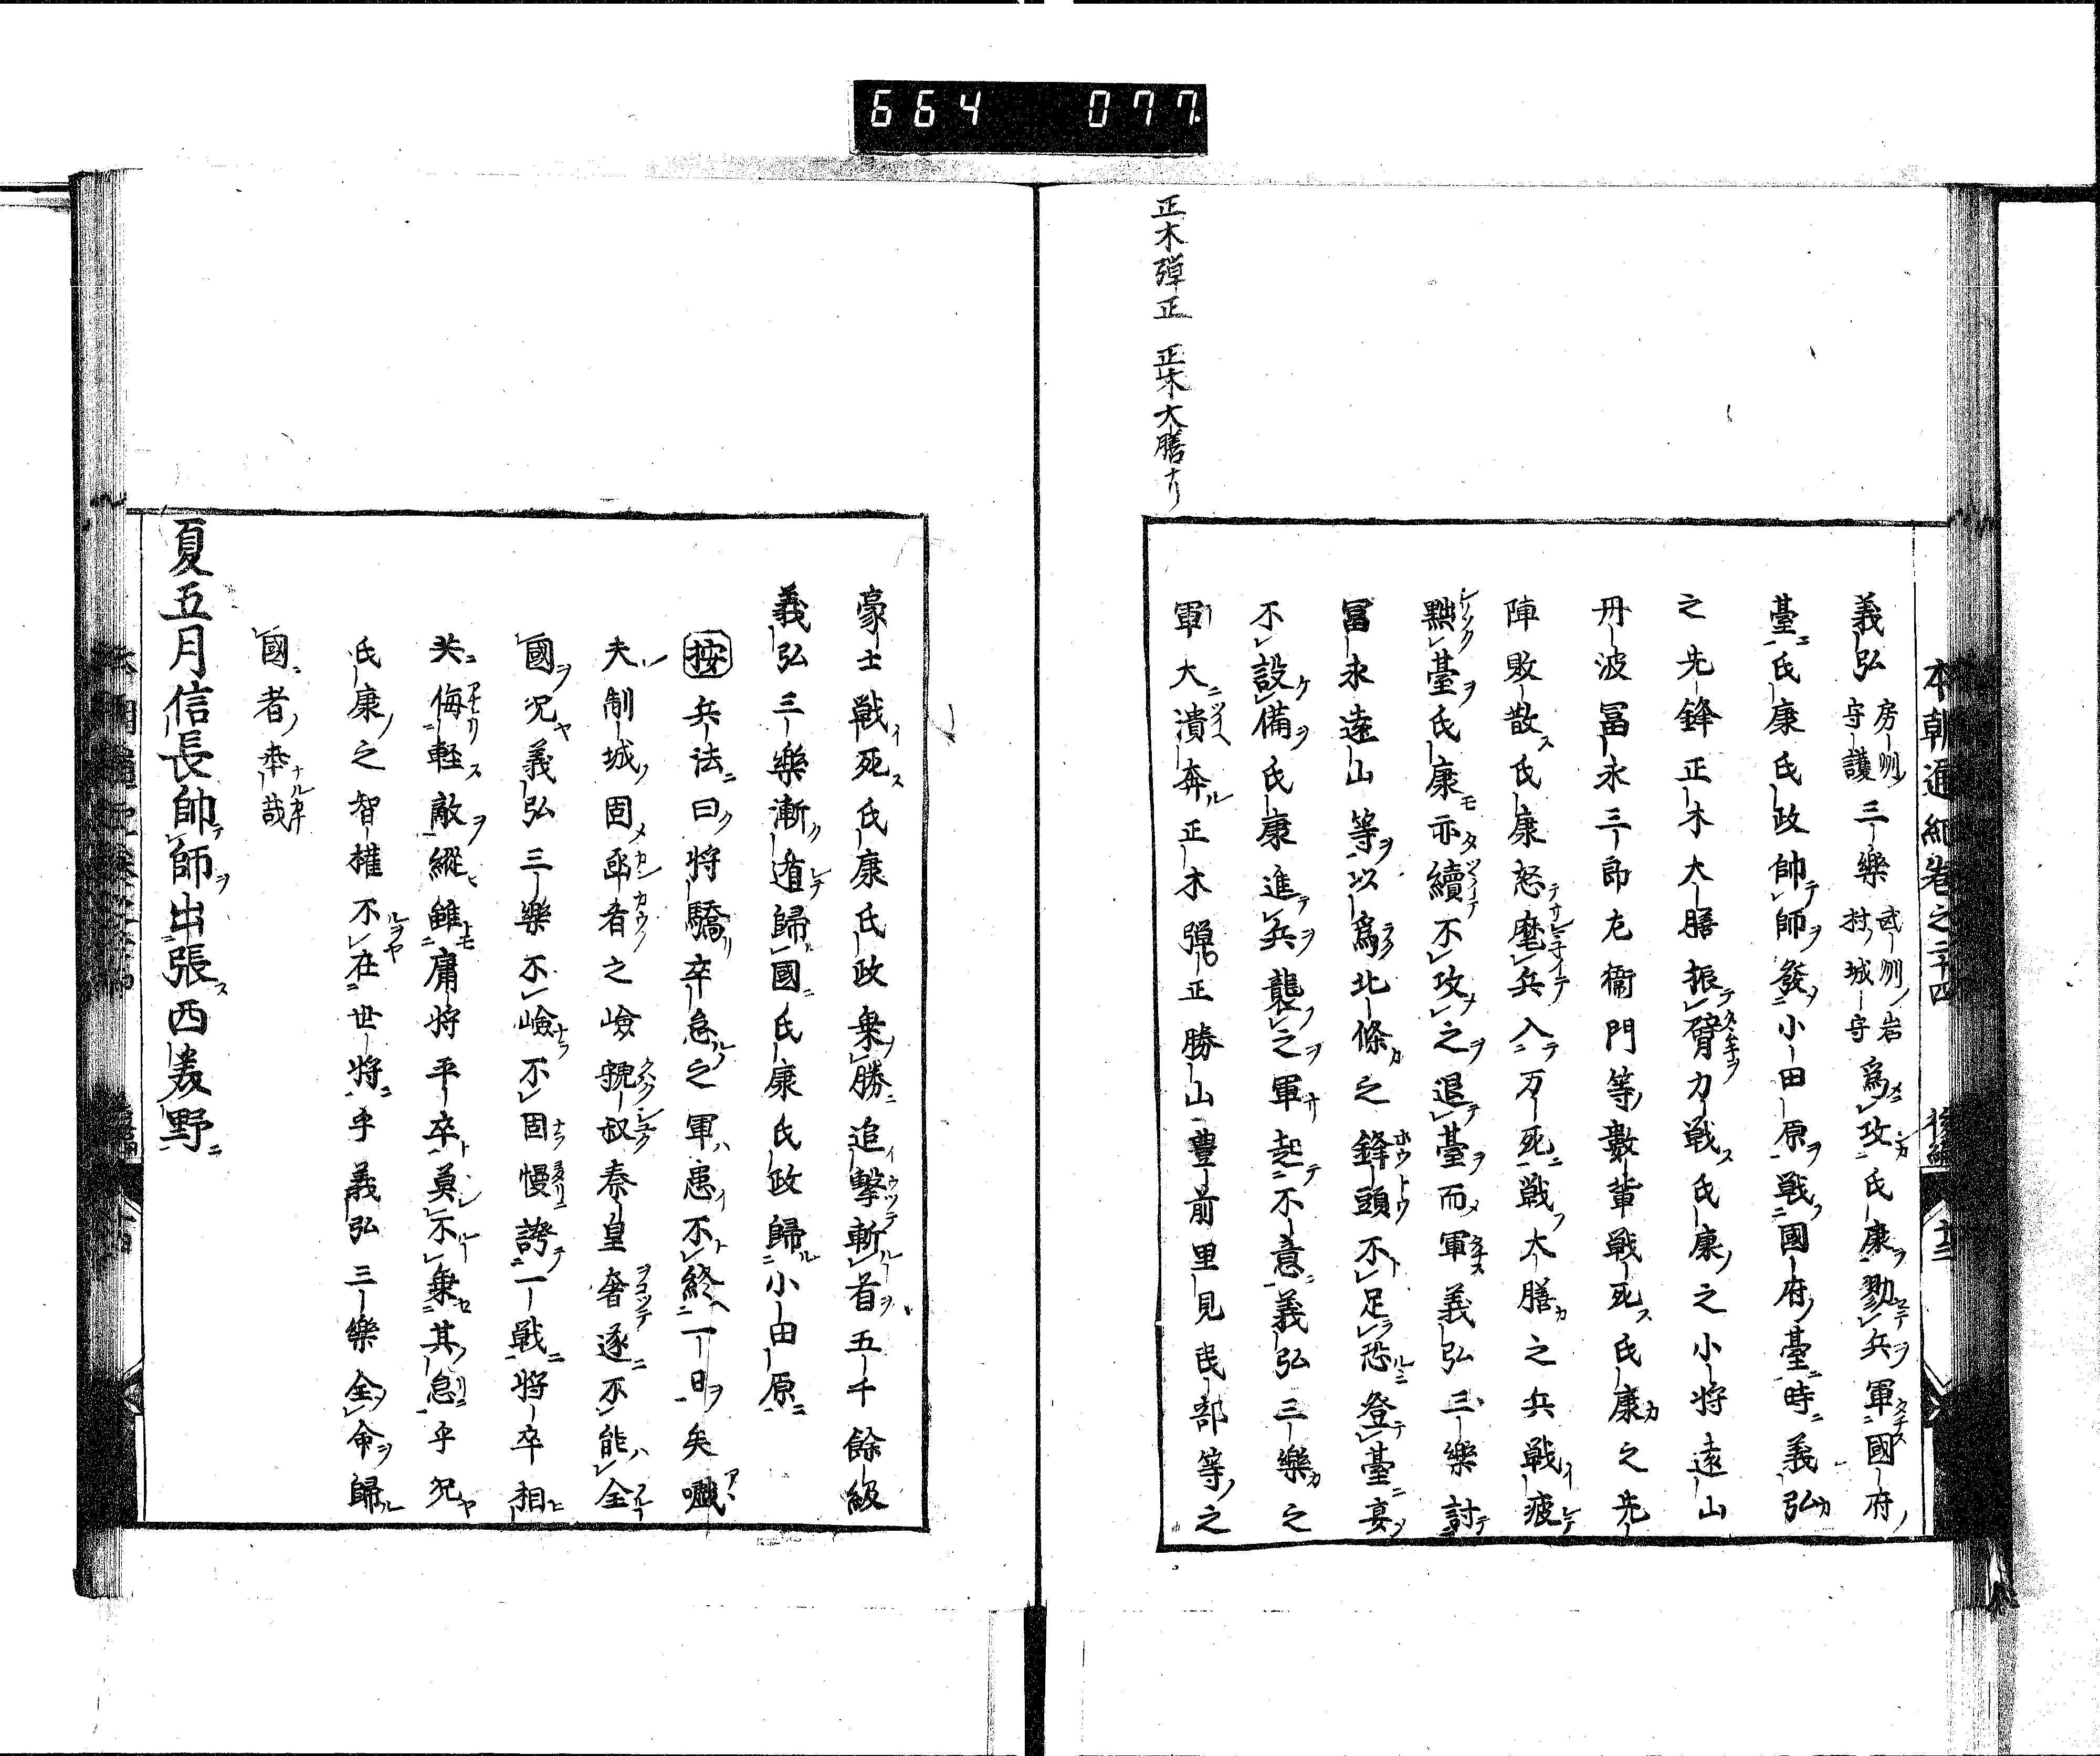 664 077
正木彈正 正木大膳ナリ
本朝通紀卷之二十四 後編 十三
義弘房州守護三樂武州岩村城守爲攻氏康勠兵軍國府
臺氏康氏政帥師發小田原戰國府臺時義弘
之先鋒正木大膳振臂力戰氏康之小将遠山
丹波冨永三郎左衞門等數輩戰死氏康之先
陣敗散氏康怒麾兵入万死戰大膳之兵戰疲
點臺氏康亦續不攻之退臺而軍義弘三樂討
冨永遠山等以爲北條之鋒頭不足恐登臺宴
不設備氏康進兵襲之軍起不意義弘三樂之
軍大潰奔正木彈正勝山豊前里見民部等之
豪士戰死氏康氏政乗勝追擊斬首五千餘級
義弘三樂漸遁歸國氏康氏政歸小田原
按兵法曰将驕卒怠之軍患不終一日矣嘰
夫制城固函者之嶮虢叔秦皇奢遂不能全
國况義弘三樂不嶮不固慢誇一戰将卒相
共侮輕敵縱雖庸将平卒莫不乗其怠乎况
氏康之智權不在世将乎義弘三樂全命歸
國者幸哉
夏五月信長帥師出張西美野